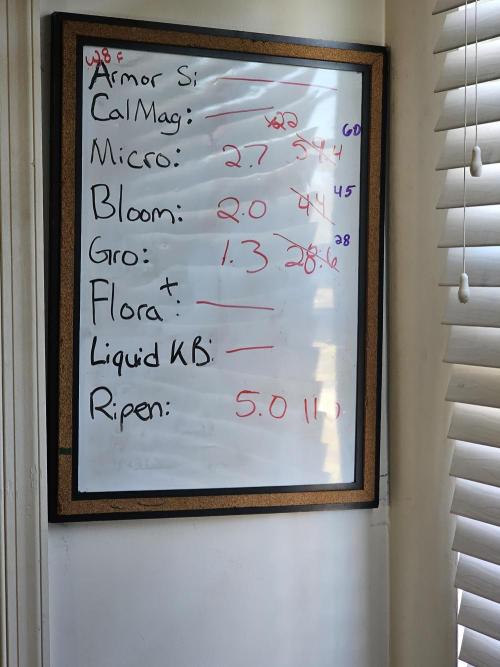 W8 F
Armor Si
CalMag:
x22
Micro: 2.7 59.4 60
Bloom: 2.0 44 45
Gro: 1.3 28.6 28
Flora+:
Liquid KB:
Ripen: 5.0